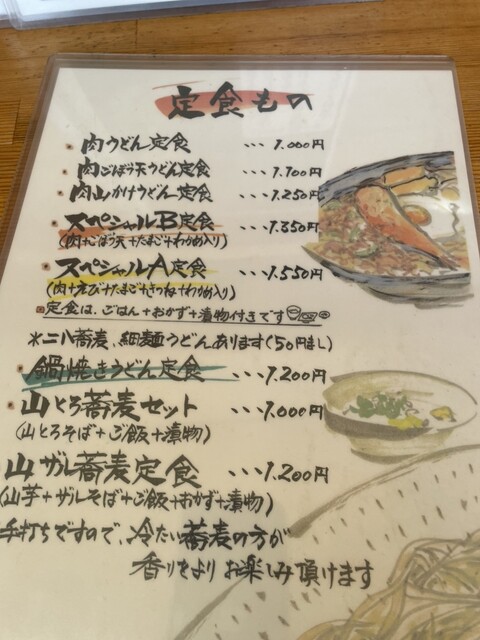 定食もの
肉うどん定食 ・・・ 1.000円
肉ごぼう天うどん定食 ・・・ 1.100円
肉山かけうどん定食 ・・・ 1.250円
スペシャルB定食 ・・・ 1.350円
(肉+ごぼう天+たまご+わかめ入り)
スペシャルA定食 ・・・ 1.550円
(肉+えび+たまご+きつね+わかめ入り)
定食は、ごはん+おかず+漬物付きです
*二八蕎麦、細麺うどんあります(50円まし)
鍋焼きうどん定食 ・・・ 1.200円
山とろ蕎麦セット ・・・ 1.000円
(山とろそば+ご飯+漬物)
山ザル蕎麦定食 ・・・ 1.200円
(山芋+ザルそば+ご飯+おかず+漬物)
手打ちですので、冷たい蕎麦の方が
香りをよりお楽しみ頂けます